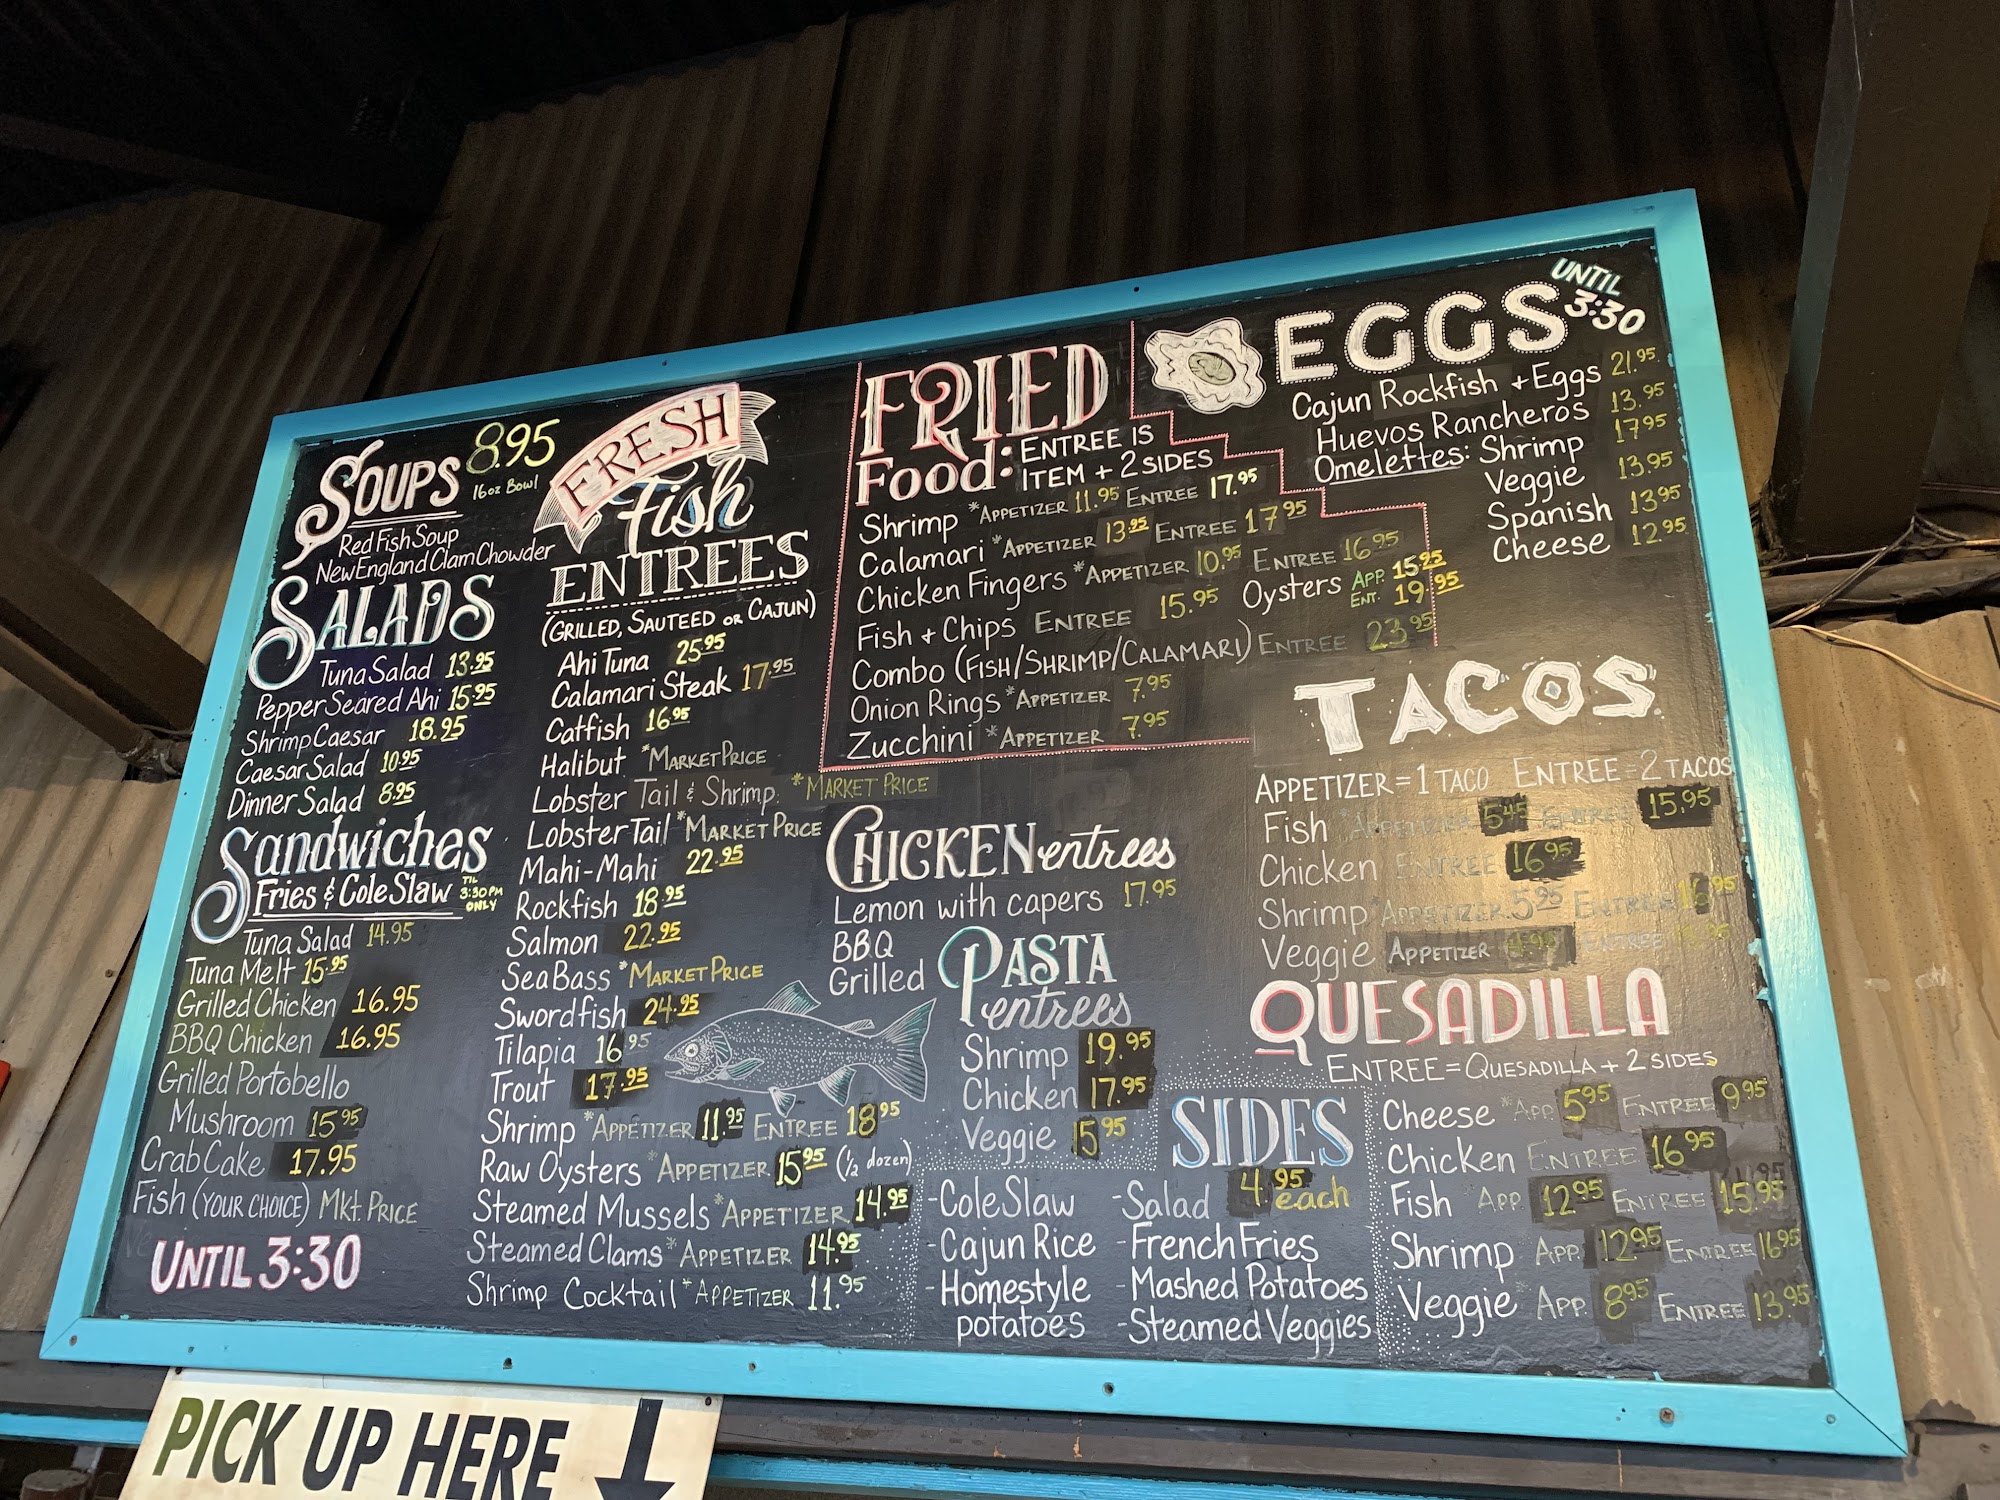 SOUPS 8.95
16oz Bowl
Red Fish Soup
New England Clam Chowder
SALADS
Tuna Salad 13.95
Pepper Seared Ahi 15.95
Shrimp Caesar 18.95
Caesar Salad 10.95
Dinner Salad 8.95
Sandwiches
Fries & Cole Slaw TIL 3:30PM ONLY
Tuna Salad 14.95
Tuna Melt 15.95
Grilled Chicken 16.95
BBQ Chicken 16.95
Grilled Portobello
Mushroom 15.95
Crab Cake 17.95
Fish (YOUR CHOICE) Mkt. PRICE
UNTIL 3:30
FRESH
Fish
ENTREES
(GRILLED, SAUTEED OR CAJUN)
Ahi Tuna 25.95
Calamari Steak 17.95
Catfish 16.95
Halibut *MARKET PRICE
Lobster Tail & Shrimp *MARKET PRICE
Lobster Tail *MARKET PRICE
Mahi-Mahi 22.95
Rockfish 18.95
Salmon 22.95
Sea Bass *MARKET PRICE
Swordfish 24.95
Tilapia 16.95
Trout 17.95
Shrimp *APPETIZER 11.95 ENTREE 18.95
Raw Oysters *APPETIZER 15.95 (1/2 dozen)
Steamed Mussels *APPETIZER 14.95
Steamed Clams *APPETIZER 14.95
Shrimp Cocktail *APPETIZER 11.95
FRIED
Food: ENTREE IS
ITEM + 2 SIDES
Shrimp *APPETIZER 11.95 ENTREE 17.95
Calamari *APPETIZER 13.95 ENTREE 17.95
Chicken Fingers *APPETIZER 10.95 ENTREE 16.95
Fish + Chips ENTREE 15.95
Oysters APP. 15.95
ENT. 19.95
Combo (FISH/SHRIMP/CALAMARI) ENTREE 23.95
Onion Rings *APPETIZER 7.95
Zucchini *APPETIZER 7.95
CHICKEN entrees
Lemon with capers 17.95
BBQ
Grilled
PASTA
entrees
Shrimp 19.95
Chicken 17.95
Veggie 15.95
SIDES
4.95 each
-Cole Slaw
-Cajun Rice
-Homestyle
potatoes
-Salad
-French Fries
-Mashed Potatoes
-Steamed Veggies
EGGS UNTIL 3:30
Cajun Rockfish + Eggs 21.95
Huevos Rancheros 13.95
Omelettes: Shrimp 17.95
Veggie 13.95
Spanish 13.95
Cheese 12.95
TACOS
APPETIZER = 1 TACO ENTREE = 2 TACOS
Fish *APPETIZER 5.45 ENTREE 15.95
Chicken ENTREE 16.95
Shrimp *APPETIZER 5.95 ENTREE
Veggie APPETIZER ENTREE
QUESADILLA
ENTREE = QUESADILLA + 2 SIDES
Cheese *APP. 5.95 ENTREE 9.95
Chicken ENTREE 16.95
Fish APP. 12.95 ENTREE 15.95
Shrimp APP. 12.95 ENTREE 16.95
Veggie APP. 8.95 ENTREE 13.95
PICK UP HERE